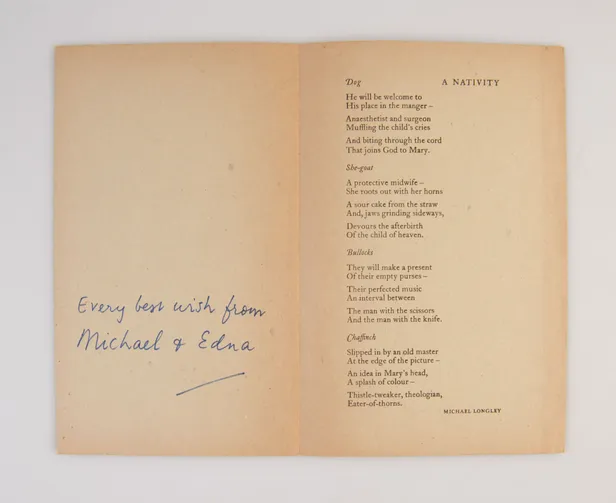 Every best wish from
Michael & Edna
Dog
A NATIVITY
He will be welcome to
His place in the manger –
Anaesthetist and surgeon
Muffling the child's cries
And biting through the cord
That joins God to Mary.
She-goat
A protective midwife –
She roots out with her horns
A sour cake from the straw
And, jaws grinding sideways,
Devours the afterbirth
Of the child of heaven.
Bullocks
They will make a present
Of their empty purses –
Their perfected music
An interval between
The man with the scissors
And the man with the knife.
Chaffinch
Slipped in by an old master
At the edge of the picture –
An idea in Mary's head,
A splash of colour –
Thistle-tweaker, theologian,
Eater-of-thorns.
MICHAEL LONGLEY